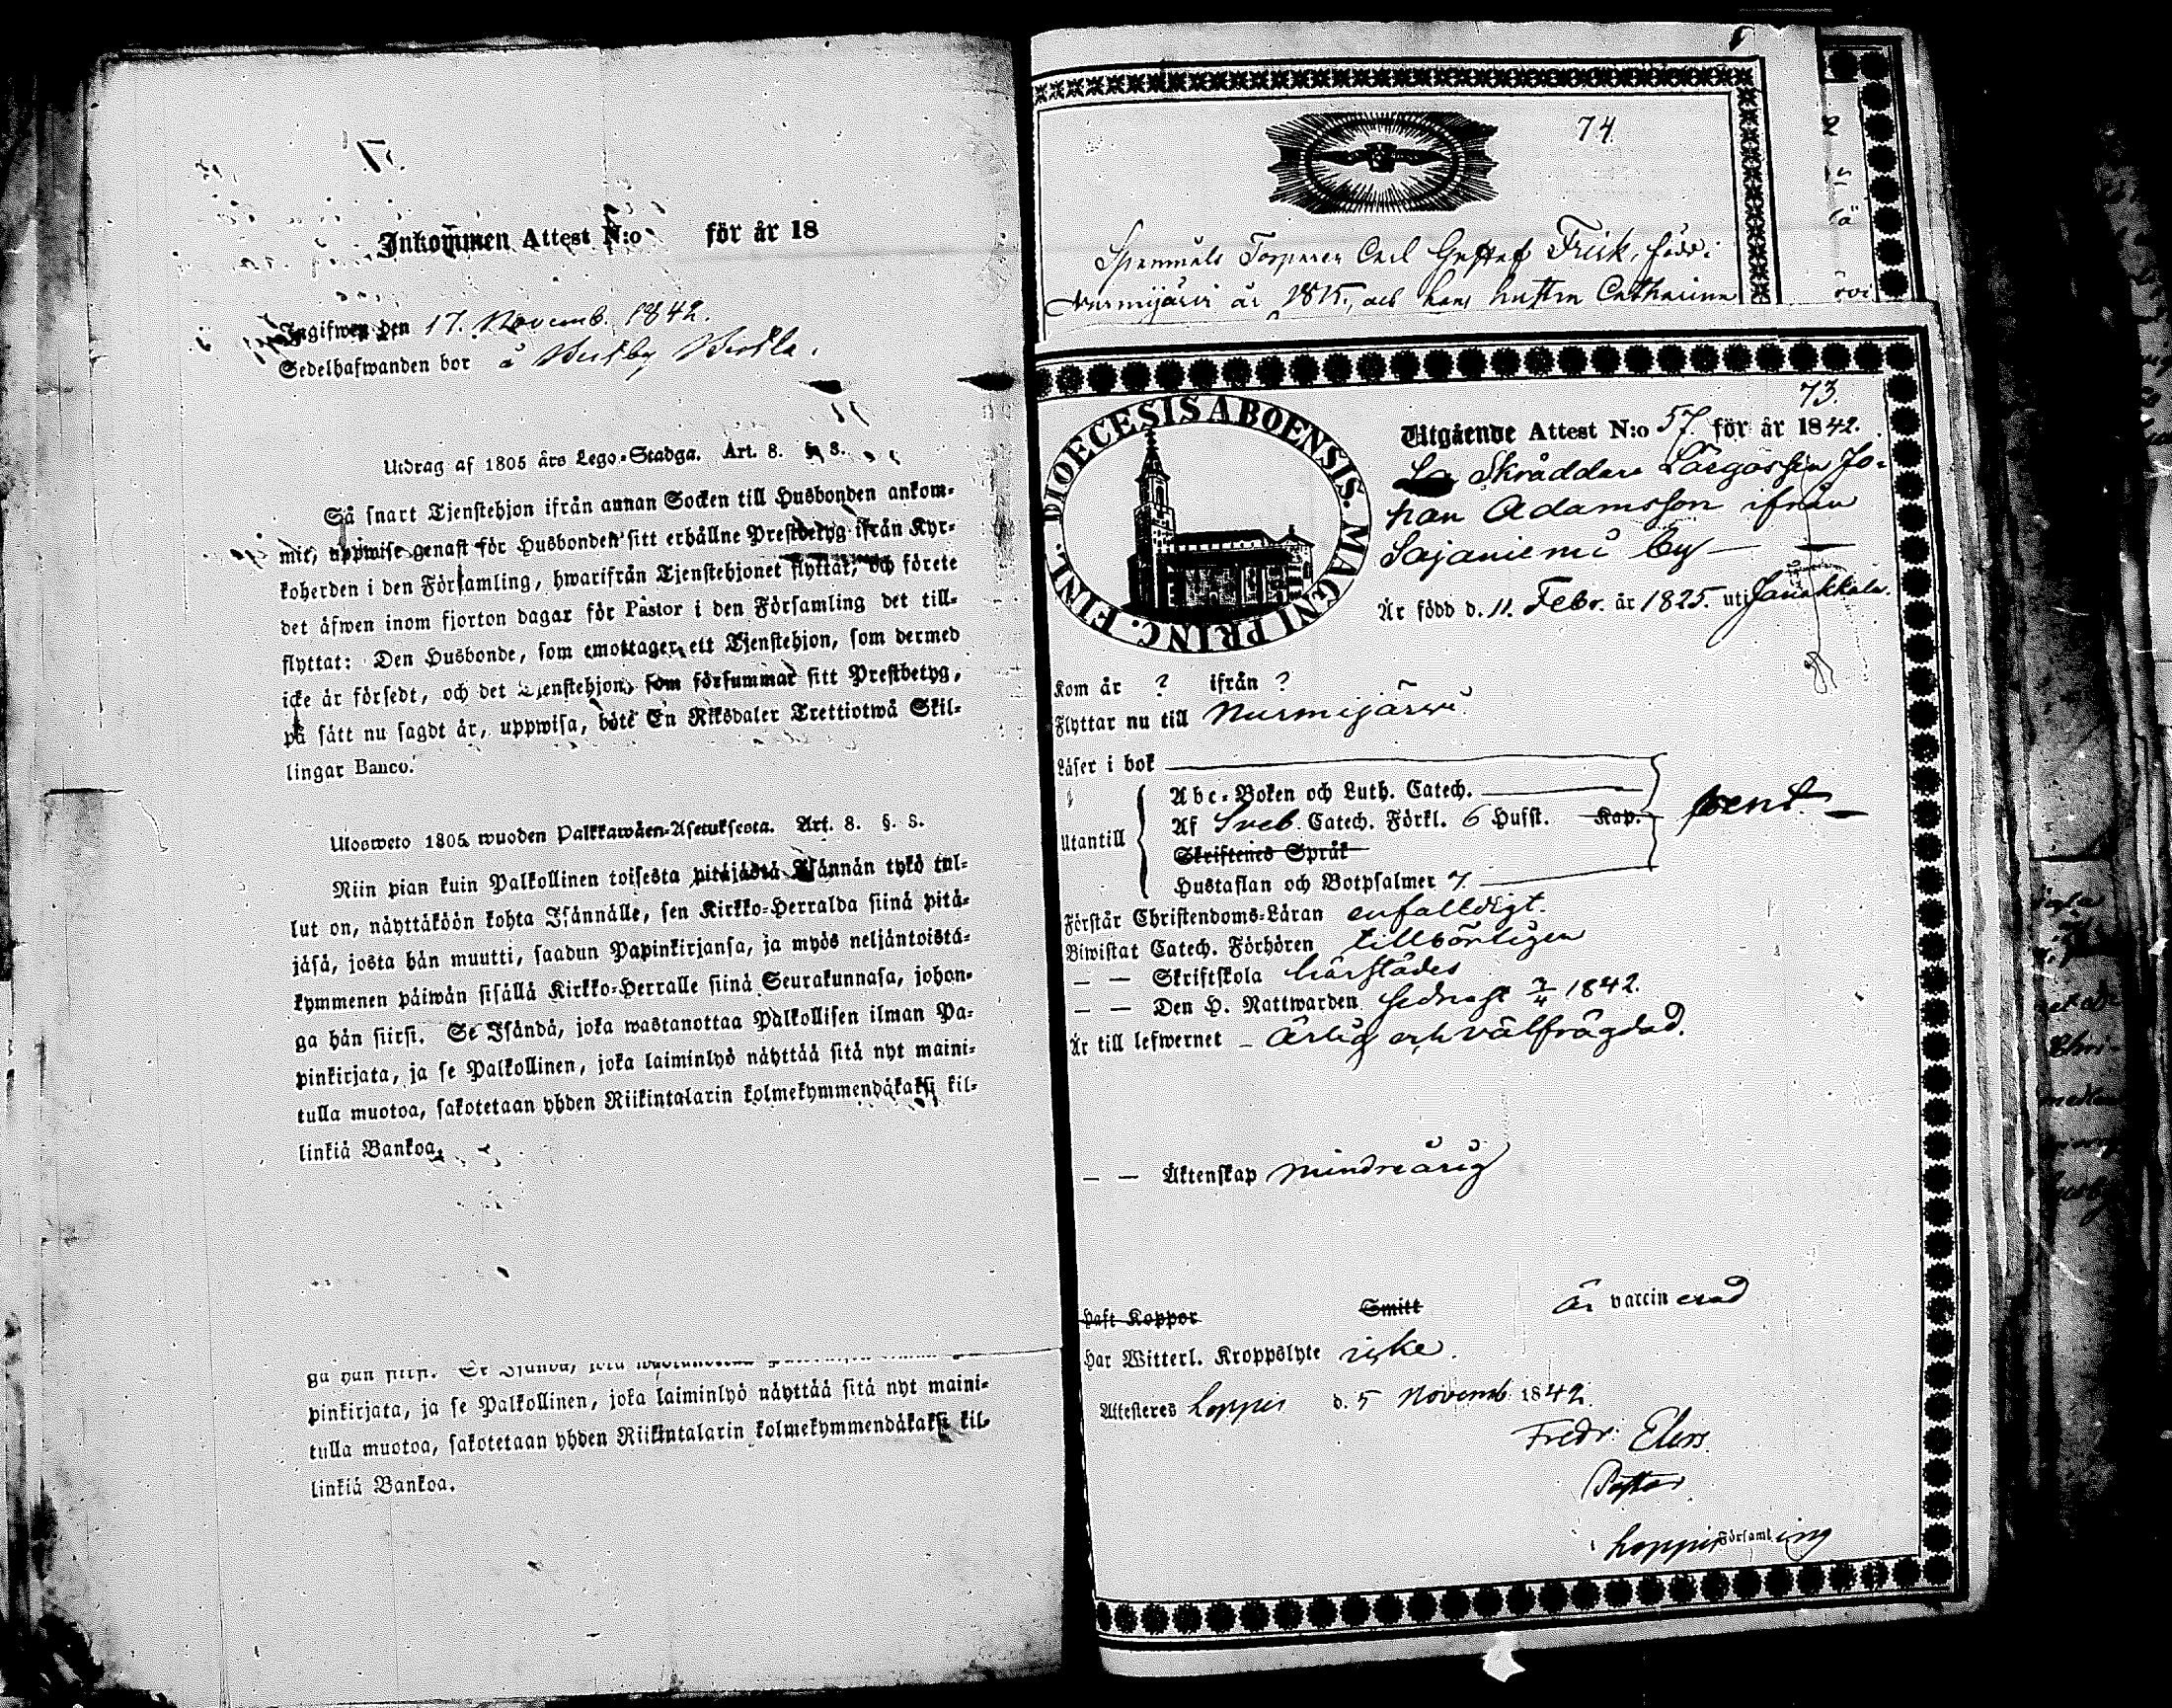 Inkommen Attest N:o för år 18
Ingifwen den 17. Novemb. 1842.
Sedelhafwanden bor å
Utdrag af 1805 års Lego-Stadga. Art. 8. §. 8.
Så snart Tjenstehjon ifrån annan Socken till Husbonden ankom-
mit, uppwise genast för Husbonden sitt erhållne Prestbetyg ifrån Kyr-
koherden i den Församling, hwarifrån Tjenstehjonet flyttat, och förete
det äfwen inom fjorton dagar för Pastor i den Församling det till-
flyttat: Den Husbonde, som emottager ett Tjenstehjon, som dermed
icke är försedt, och det Tjenstehjon, som försummar sitt Prestbetyg,
på sätt nu sagdt är, uppwisa, böte En Riksdaler Trettiotwå Skil-
lingar Banco.
Ulosweto 1805 wuoden Palkkawäen-Asetuksesta. Art. 8. §. 8.
Niin pian kuin Palkollinen toisesta pitäjästä Isännän tykö tul-
lut on, näyttäköön kohta Isännälle, sen Kirkko-Herralda siinä pitä-
jäsä, josta hän muutti, saadun Papinkirjansa, ja myös neljäntoistä-
kymmenen päiwän sisällä Kirkko-Herralle siinä Seurakunnasa, johon-
ga hän siirsi. Se Isändä, joka wastanottaa Palkollisen ilman Pa-
pinkirjata, ja se Palkollinen, joka laiminlyö näyttää sitä nyt maini-
tulla muotoa, sakotetaan yhden Riikintalarin kolmekymmendäkaksi kil-
linkiä Bankoa.
pinkirjata, ja se Palkollinen, joka laiminlyö näyttää sitä nyt maini-
tulla muotoa, sakotetaan yhden Riikintalarin kolmekymmendäkaksi kil-
linkiä Bankoa.
74.
Torparen Carl Gustaf Frisk, född i
Nurmijärvi år 1815, och hans hustru Catharina
73.
DIOECESIS ABOENSIS. MAGNI PRINC. FINL.
Utgående Attest N:o 57 för år 1842.
Skräddare Lärgossen Jo-
han Adamsson ifrån
Sajaniemi by
Är född d. 11. Febr. år 1825. uti Janakkala.
Kom år ? ifrån ?
Flyttar nu till Nurmijärvi.
Läser i bok
Abc-Boken och Luth. Catech.
Utantill
Af Sveb. Catech. Förkl. 6 Hufst. Kap.
Skriftenes Språk
Hustaflan och Botpsalmer 7.
Förstår Christendoms-Läran enfalldigt.
Biwistat Catech. Förhören tillbörligen
— — Skriftskola härstädes
— — Den H. Nattwarden sednast 3/4 1842.
Är till lefwernet – ärlig och välfrägdad.
— — Äktenskap mindreårig
Haft Koppor Smitt Är vaccinerad
Har Witterl. Kroppslyte icke.
Attesteres Loppis d. 5 Novemb. 1842.
Fredr.
Pastor
Loppis Församling